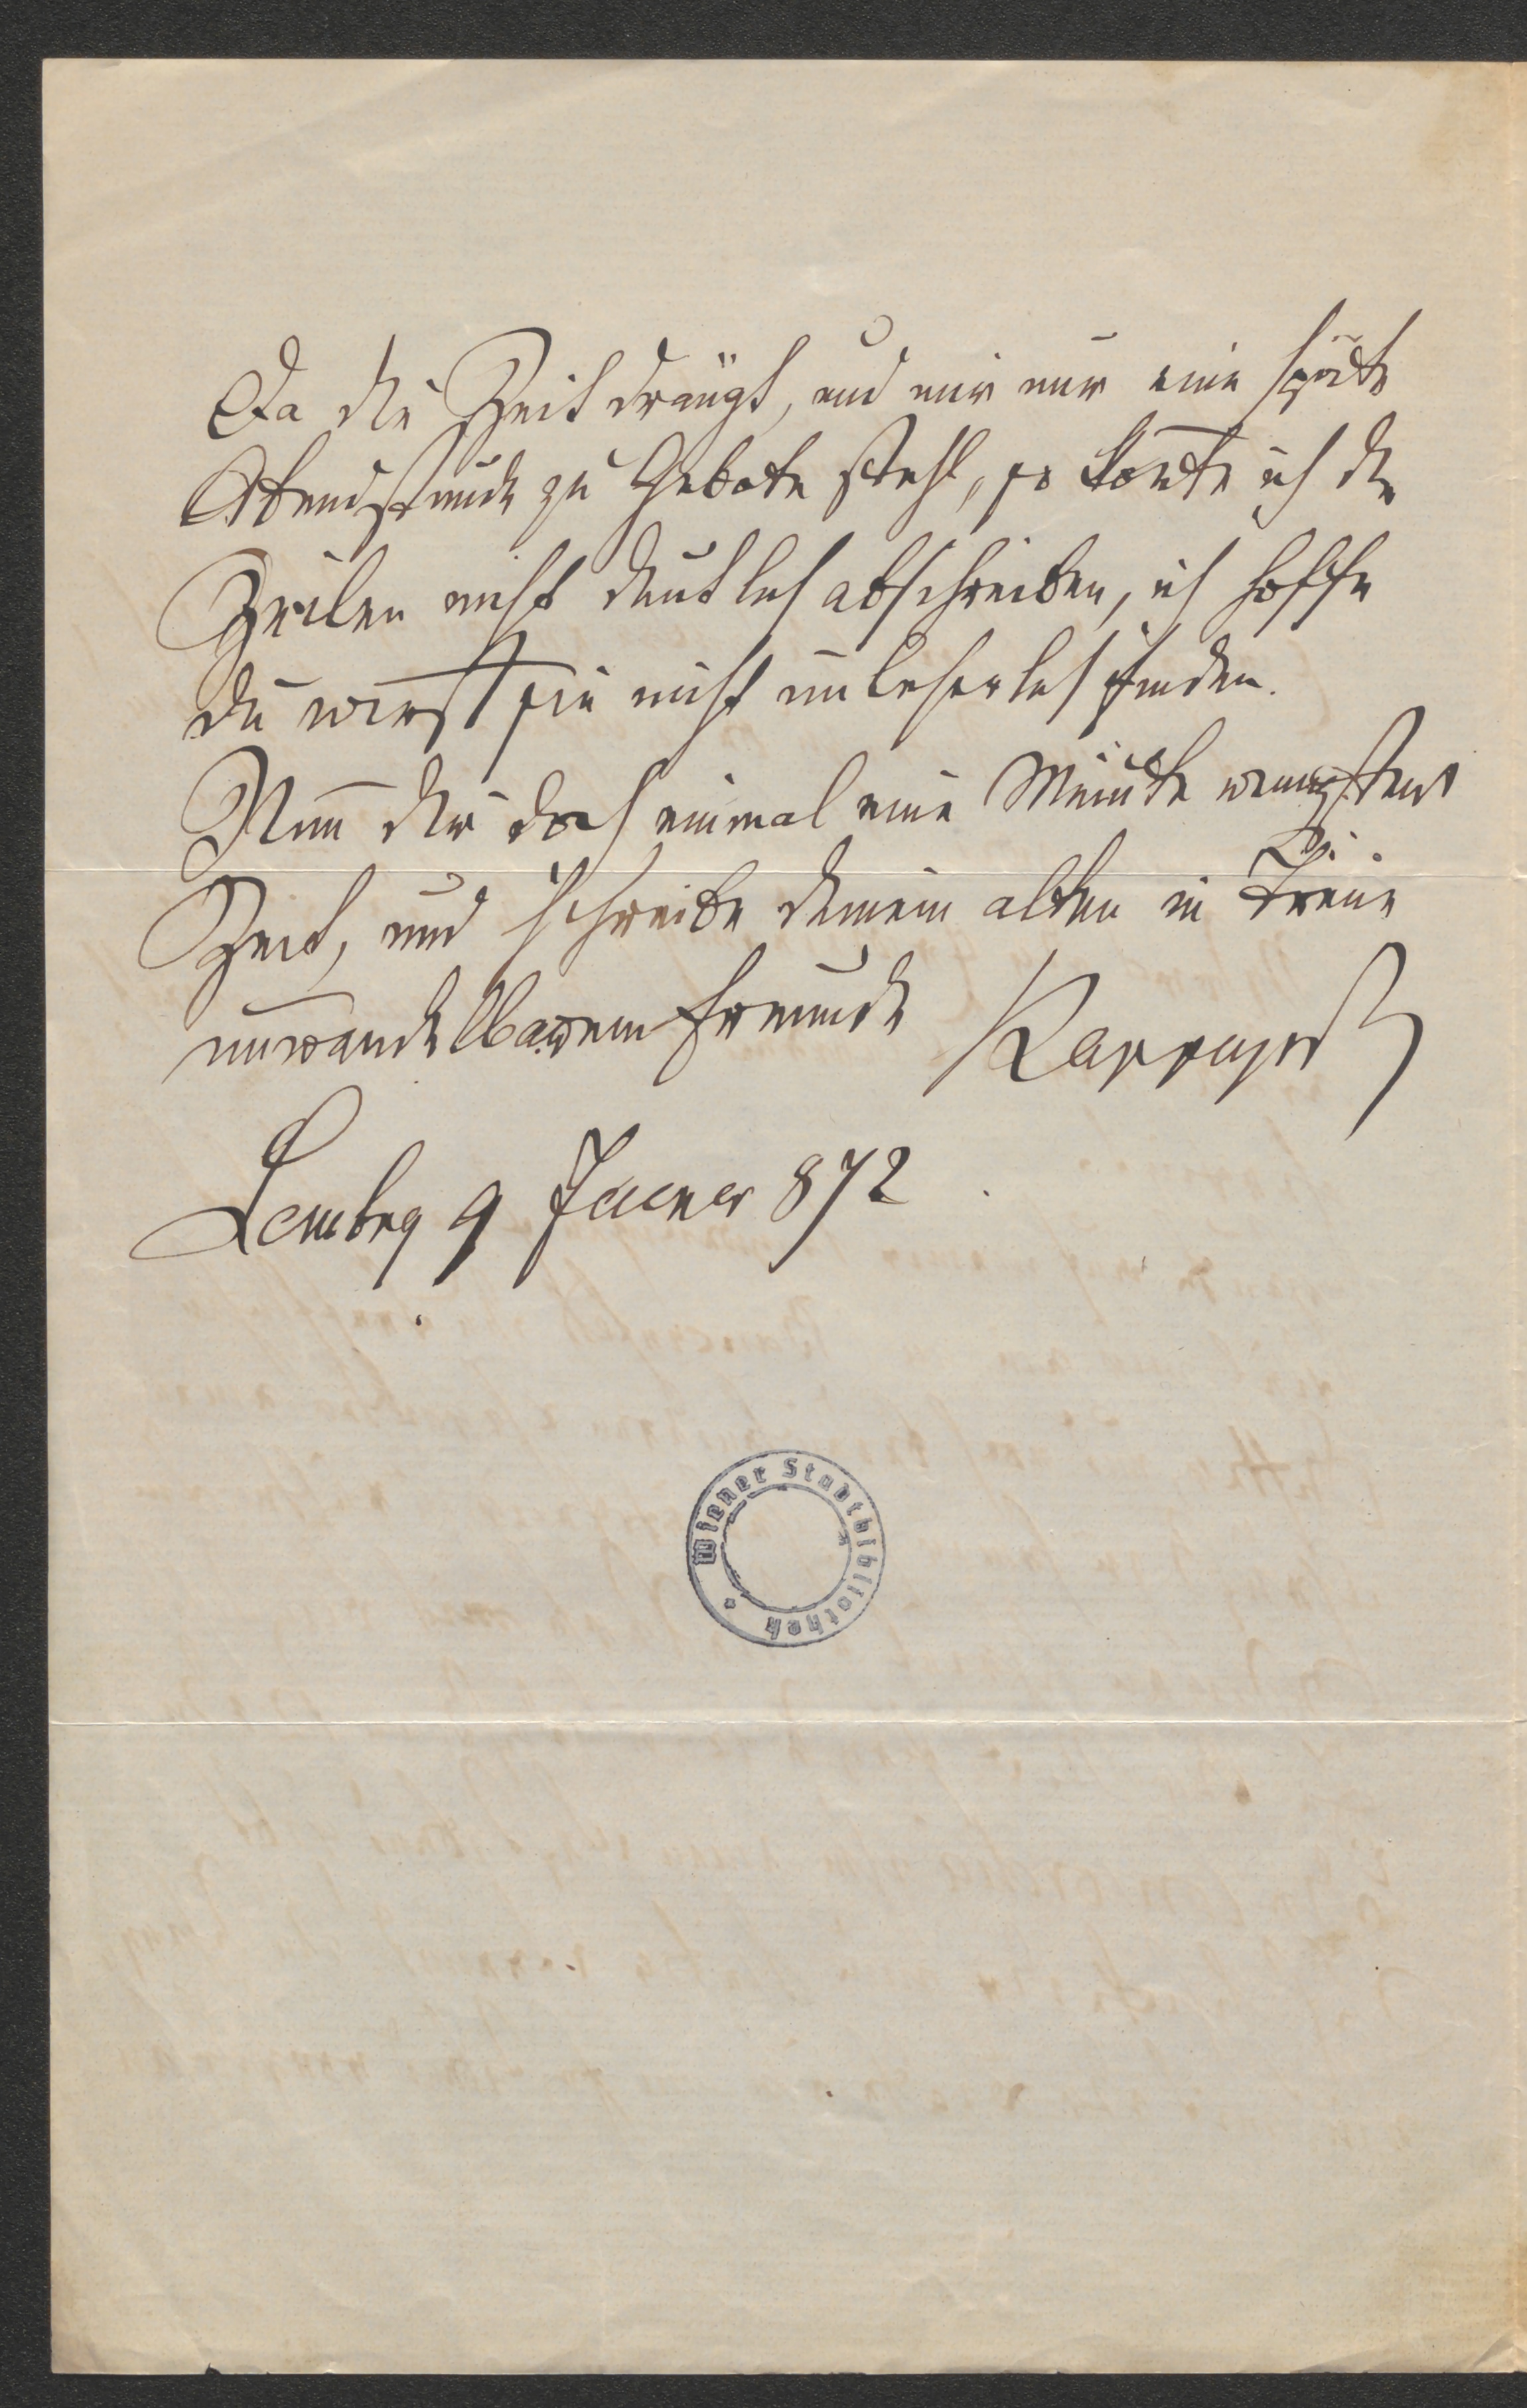 Da die Zeit drängt, und mir nur eine späte
Abendstunde zu Gebote steht, so konte ich die
Zeilen nicht deutlich abschreiben, ich hoffe
du wirst sie nicht unleserlich finden.
Nim̄ dir doch einmal eine Minute wenigstens
Zeit, und schreibe deinem alten in Treue
unwandelbarem Freunde Rappaport
Lemberg 9 Jaener 872
Wiener Stadtbibliothek